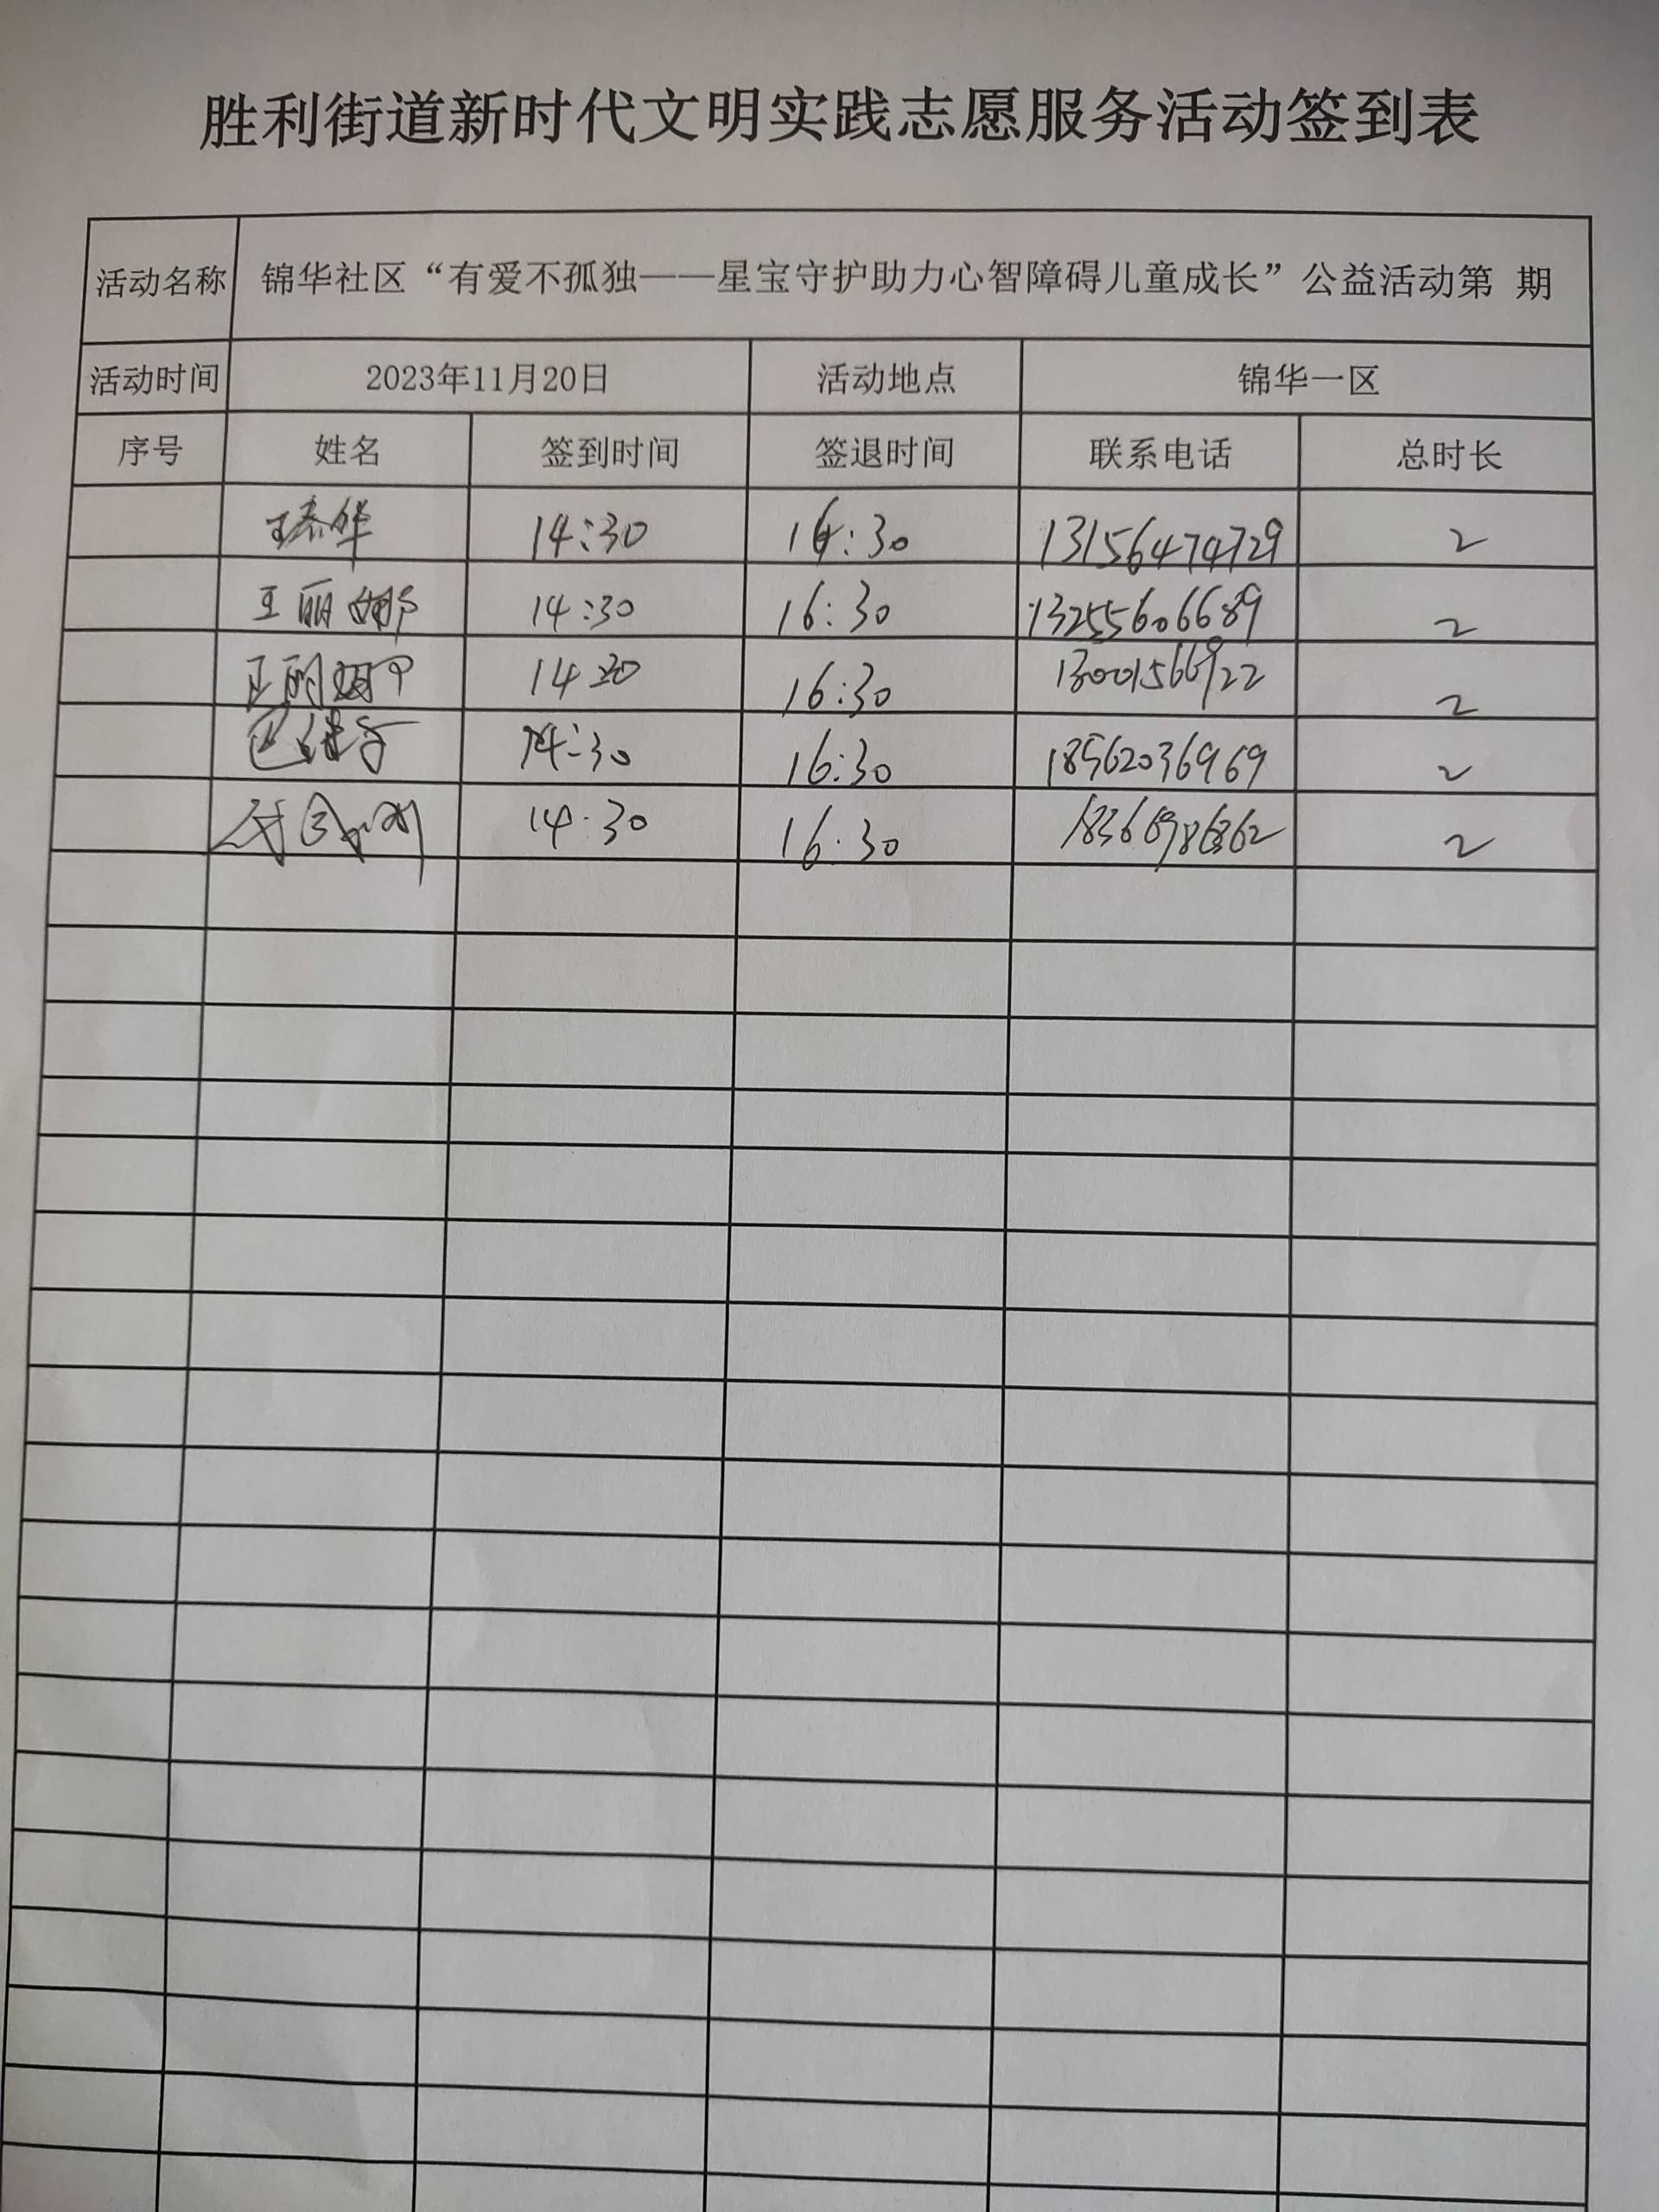 胜利街道新时代文明实践志愿服务活动签到表
活动名称 锦华社区“有爱不孤独——星宝守护助力心智障碍儿童成长”公益活动第 期
活动时间 2023年11月20日 活动地点 锦华一区
序号 姓名 签到时间 签退时间 联系电话 总时长
王春华 14:30 16:30 13156474729 2
王丽娜 14:30 16:30 13255606689 2
14 30 16:30 13001566922 2
14:30 16:30 18562036969 2
14:30 16:30 2